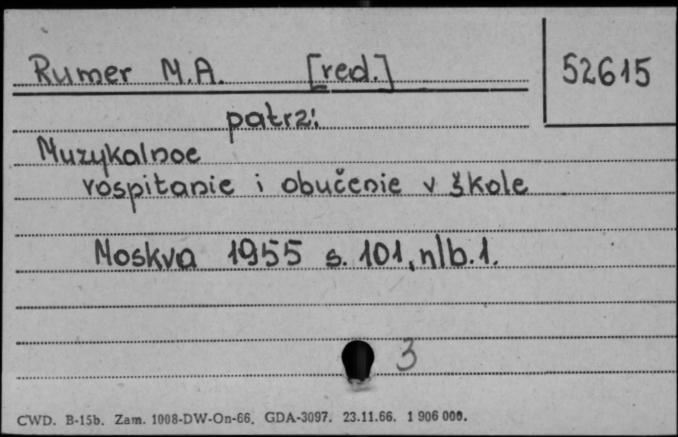 Rumer M.A. [red.]
52615
patrz:
Muzykalnoe
vospitanie i obučenie v škole
Moskva 1955 s. 101, nlb. 1.
3
CWD. B-15b. Zam. 1008-DW-On-66. GDA-3097. 23.11.66. 1 906 000.